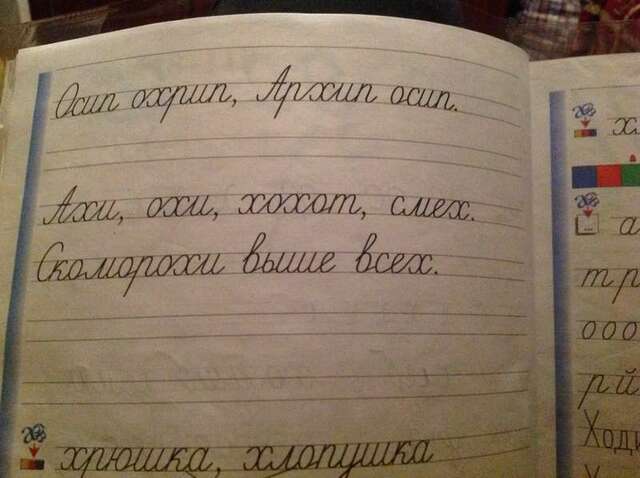 Осип охрип, Архип осип.
Ахи, охи, хохот, смех.
Скоморохи выше всех.
хрюшка, хлопушка
а
тр
ооо
рй
Ходи